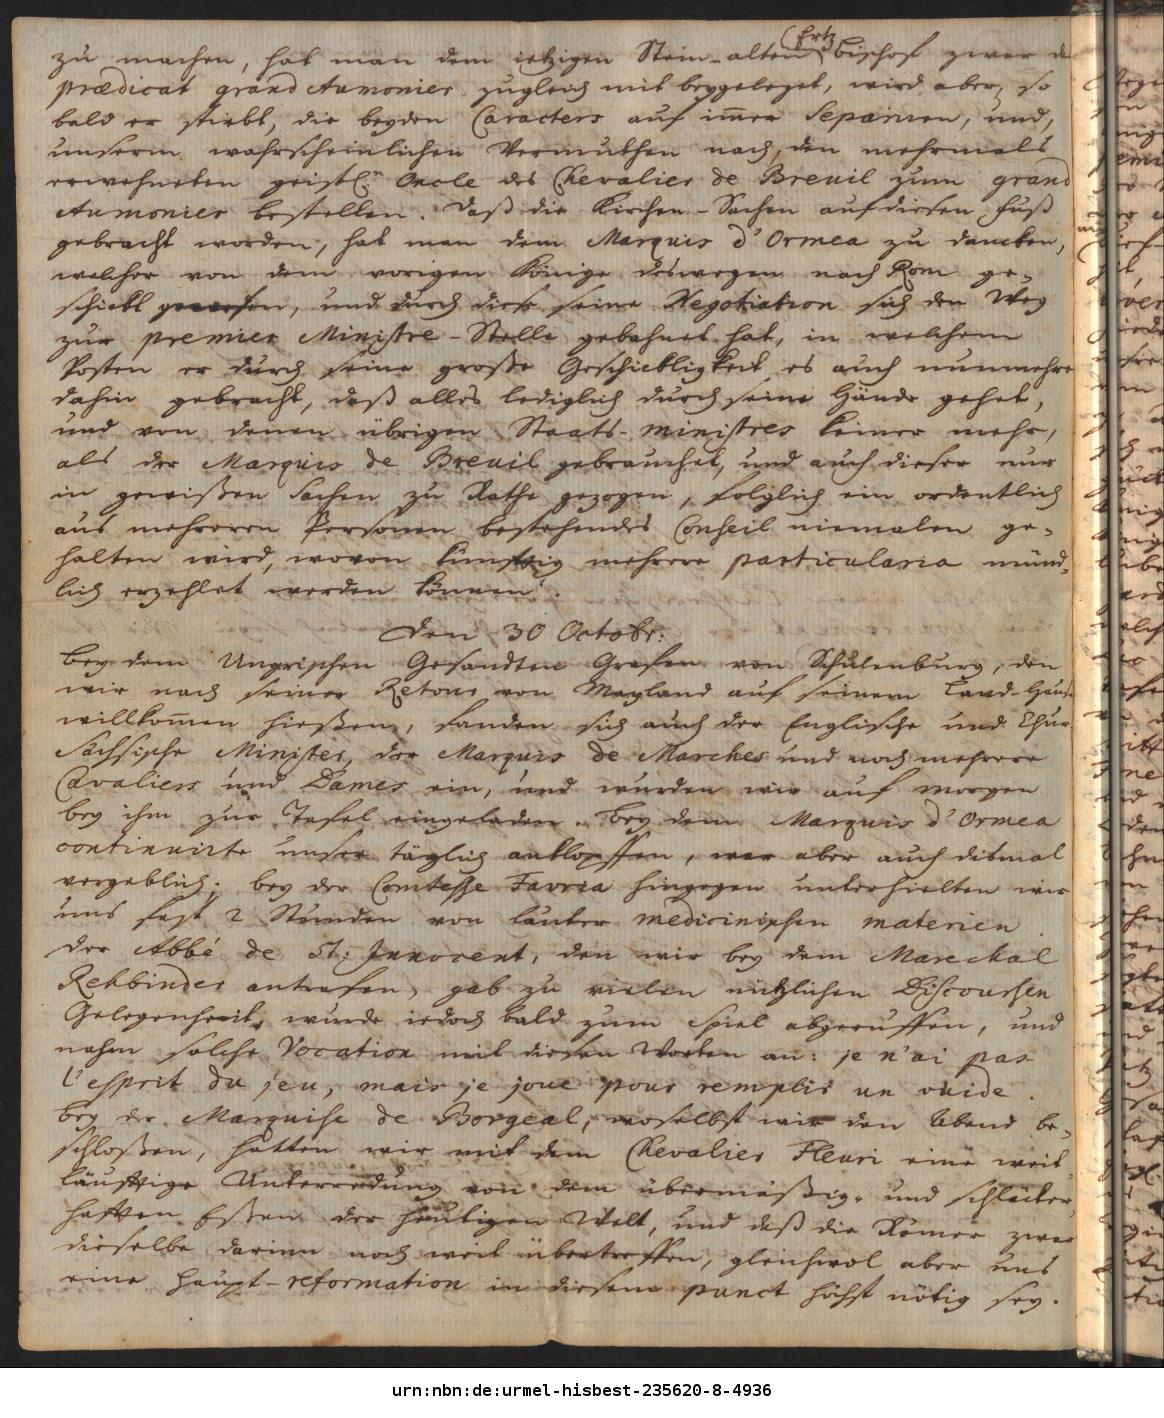 zu machen, hat man dem ietzigen Stein-alten Ertz bischof zwar d
prædicat grand Aumonier zugleich mit beygeleget, wird aber, so
bald er stirbt, die beyden Caracters auf im̅er separiren, und,
unserm wahrscheinlichen Vermuthen nach, den mehrmals
erwehneten geistl. Oncle des Chevalier de Breuil zum grand
Aumonier bestellen. Daß die Kirchen-Sachen auf diesen Fuß
gebracht worden, hat man dem Marquis d'Ormea zu dancken,
welcher von dem vorigen Könige deswegen nach Rom ge-
schickt gewesen, und durch diese seine Negotiation sich den Weg
zur premier Ministre-Stelle gebahnet hat, in welchem
Posten er durch seine große Geschickligkeit es auch nunmehro
dahin gebracht, daß alles lediglich durch seine Hände gehet,
und von denen übrigen Staats-ministres keiner mehr,
als der Marquis de Breuil gebrauchet, und auch dieser nur
in gewißen Sachen zu Rathe gezogen, folglich ein ordentlich
aus mehreren Personen bestehendes Conseil niemalen ge-
halten wird, wovon künfftig mehrere particularia münd-
lich erzehlet werden können.
Den 30 Octobr:
Bey dem Ungrischen Gesandten Grafen von Schulenburg, den
wir nach seiner Retour von Mayland auf seinem Land-Hause
willkom̅en hießen, fanden sich auch der Englische und Chur
Sächsische Minister, der Marquis de Marches und noch mehrere
Cavaliers und Dames ein, und wurden wir auf morgen
bey ihm zur Tafel eingeladen. Bey dem Marquis d'Ormea
continuirte unser täglich anklopffen, war aber auch dismal
vergeblich; bey der Comtesse Favria hingegen unterhielten wir
uns fast 2 Stunden von lauter medicinischen materien.
Der Abbé de St: Innocent, den wir bey dem Marechal
Rehbinder antrafen, gab zu vielen nützlichen Discoursen
Gelegenheit, wurde iedoch bald zum Spiel abgeruffen, und
nahm solche Vocation mit diesen Worten an: je n'ai pas
l'esprit du jeu, mais je joue pour remplir un vuide.
Bey der Marquise de Borgeal, woselbst wir den Abend be-
schloßen, hatten wir mit dem Chevalier Fleuri eine weit
läufftige Unterredung von dem übermäßig- und schlecker-
hafften Eßen der heutigen Welt, und daß die Römer zwar
dieselbe darinn noch weit übertroffen, gleichwol aber uns
eine Haupt-reformation in diesem punct höchst nötig sey.
urn:nbn:de:urmel-hisbest-235620-8-4936